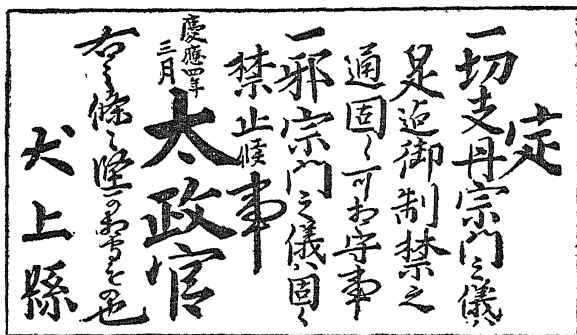 定
一切支丹宗門之儀ハ
是迄御制禁之
通固ク可相守事
一邪宗門之儀ハ固ク
禁止候事
慶應四年
三月
太政官
右之條々堅可相守もの也
犬上縣